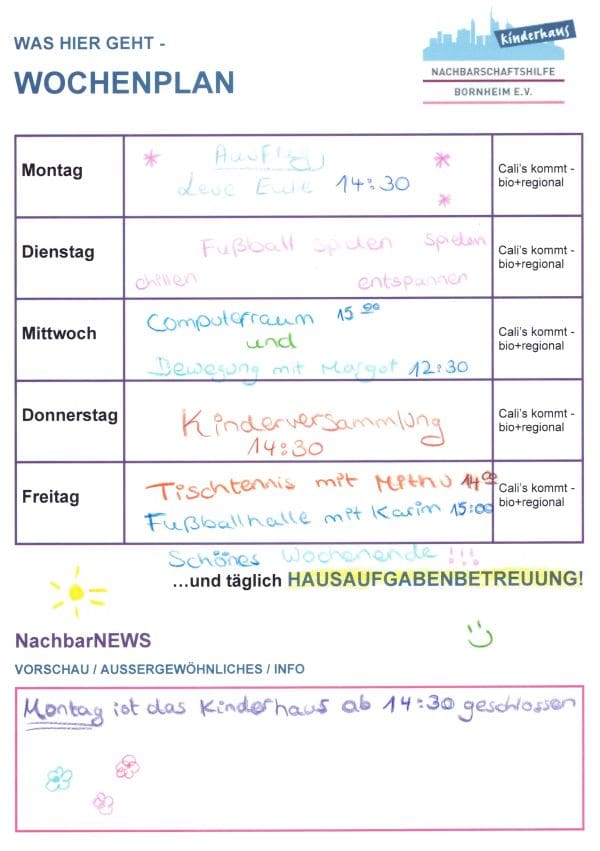 WAS HIER GEHT -
WOCHENPLAN
Kinderhaus
NACHBARSCHAFTSHILFE
BORNHEIM E.V.
Montag
Ausflug
Leve Eule 14:30
Cali's kommt -
bio+regional
Dienstag
Fußball spielen spielen
chillen entspannen
Cali's kommt -
bio+regional
Mittwoch
Computerraum 15 00
und
Bewegung mit Margot 12:30
Cali's kommt -
bio+regional
Donnerstag
Kinderversammlung
14:30
Cali's kommt -
bio+regional
Freitag
Tischtennis mit 14 00
Fußballhalle mit Karim 15:00
Cali's kommt -
bio+regional
Schönes Wochenende !!!
...und täglich HAUSAUFGABENBETREUUNG!
NachbarNEWS
VORSCHAU / AUSSERGEWÖHNLICHES / INFO
Montag ist das Kinderhaus ab 14:30 geschlossen